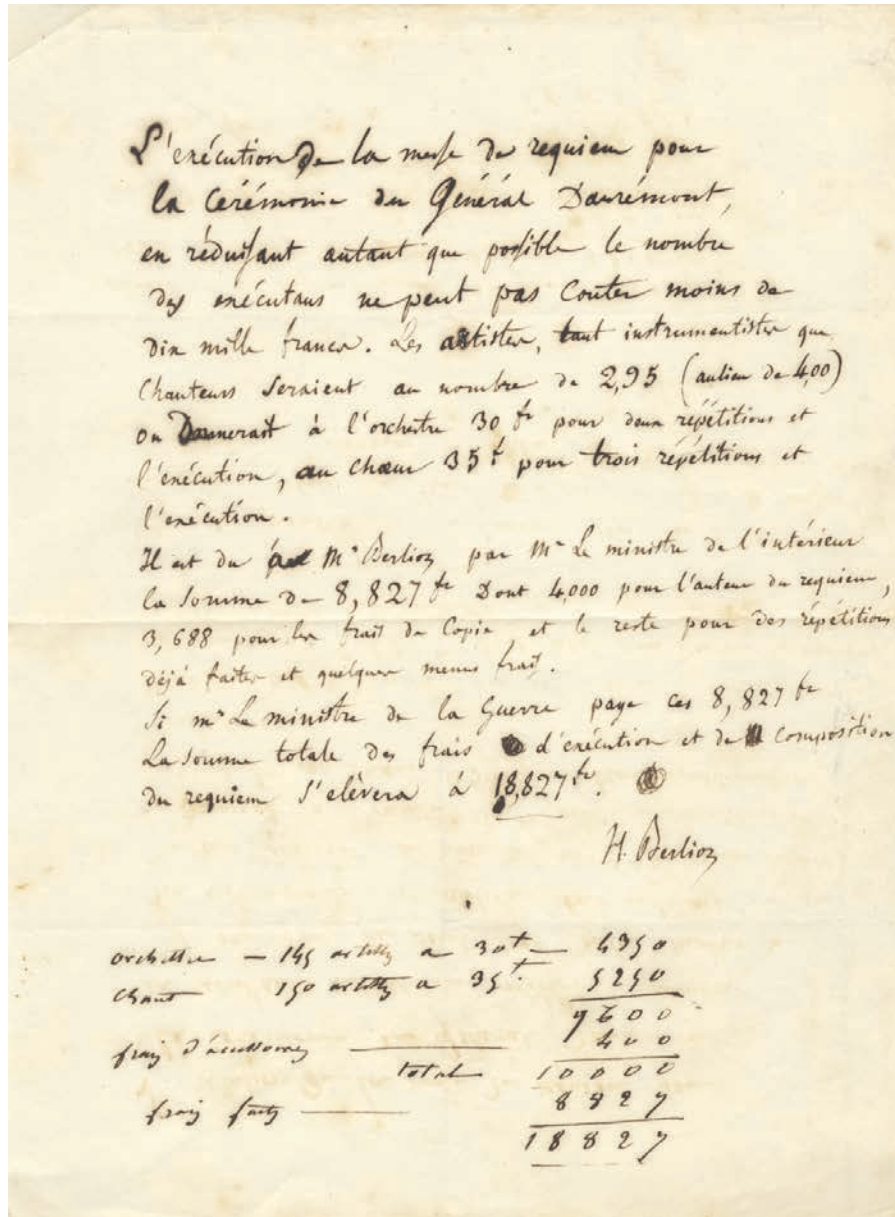 L'exécution de la messe de requiem pour
la Cérémonie du Général Danrémont,
en réduisant autant que possible le nombre
des exécutans ne peut pas couter moins de
dix mille francs. Les artistes, tant instrumentistes que
Chanteurs seraient au nombre de 2,95 (aulieu de 4,00)
on Donnerait à l'orchestre 30 fr pour deux répétitions et
l'exécution, au Chœur 35 f pour trois répétitions et
l'exécution.
Il est du à Mr Berlioz par Mr Le ministre de l'intérieur
la somme de 8,827 fr Dont 4,000 pour l'auteur du requiem,
3,688 pour les frais de Copie, et le reste pour des répétitions
déjà faites et quelques menus frais.
Si mr Le ministre de la Guerre paye ces 8,827 fr
La somme totale des frais d'exécution et de composition
du requiem s'elèvera à 18,827 fr.
H. Berlioz
orchestre — 145 artistes a 30 f — 4350
chant 150 artistes a 35 f. 5250
9600
frais d'accessoires 400
total 10000
frais faits 8827
18827